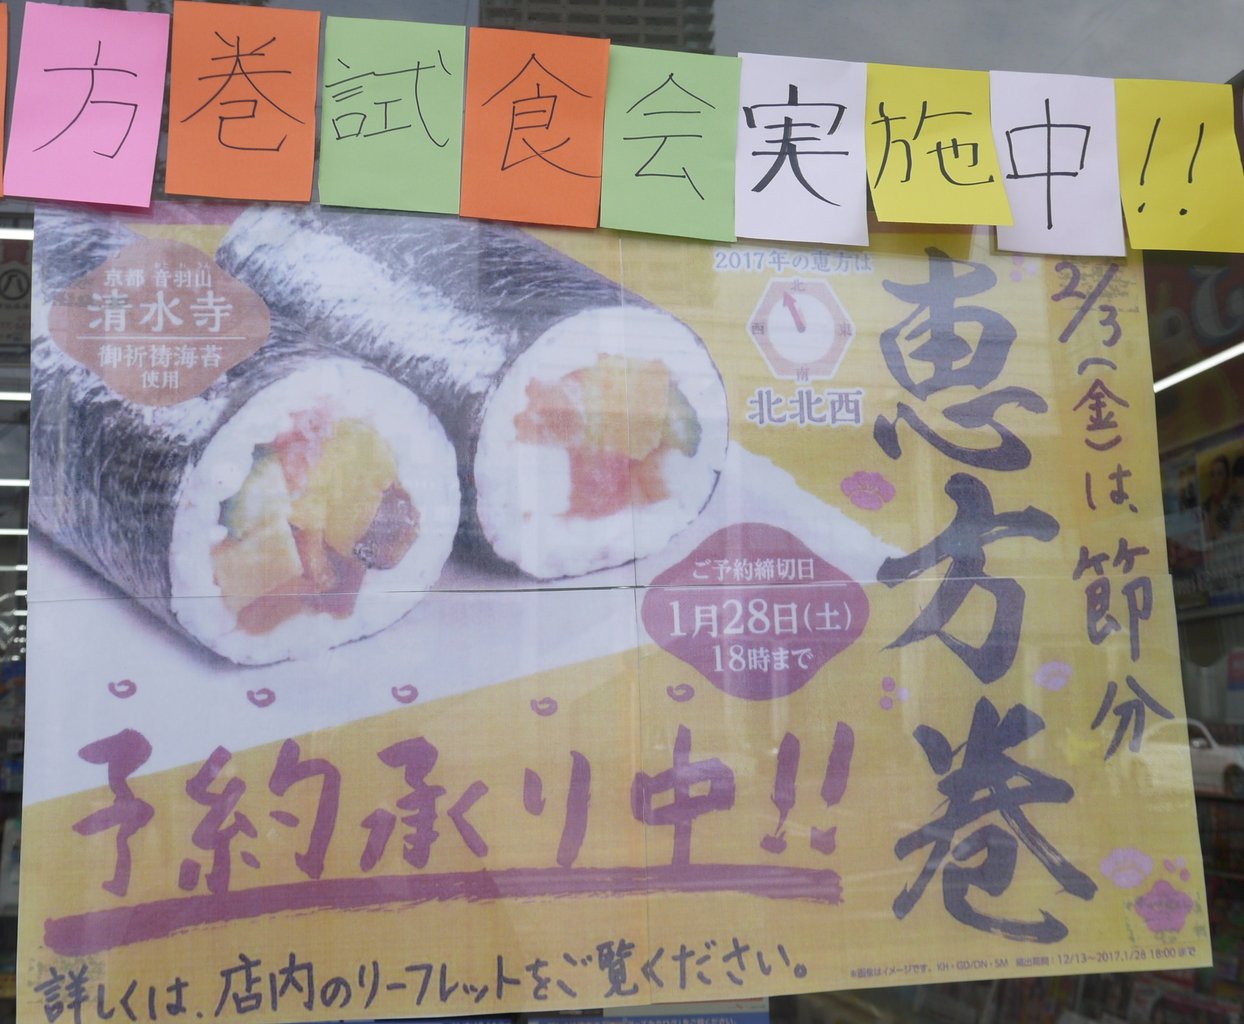 方巻試食会実施中!!
京都 音羽山
清水寺
御祈祷海苔
使用
2017年の恵方は
北
西 東
南
北北西
2/3(金)は、節分
恵方巻
ご予約締切日
1月28日(土)
18時まで
予約承り中!!
詳しくは、店内のリーフレットをご覧ください。
※画像はイメージです。KH・GD/DN・SM 掲出期間:12/13〜2017.1/28 18:00まで